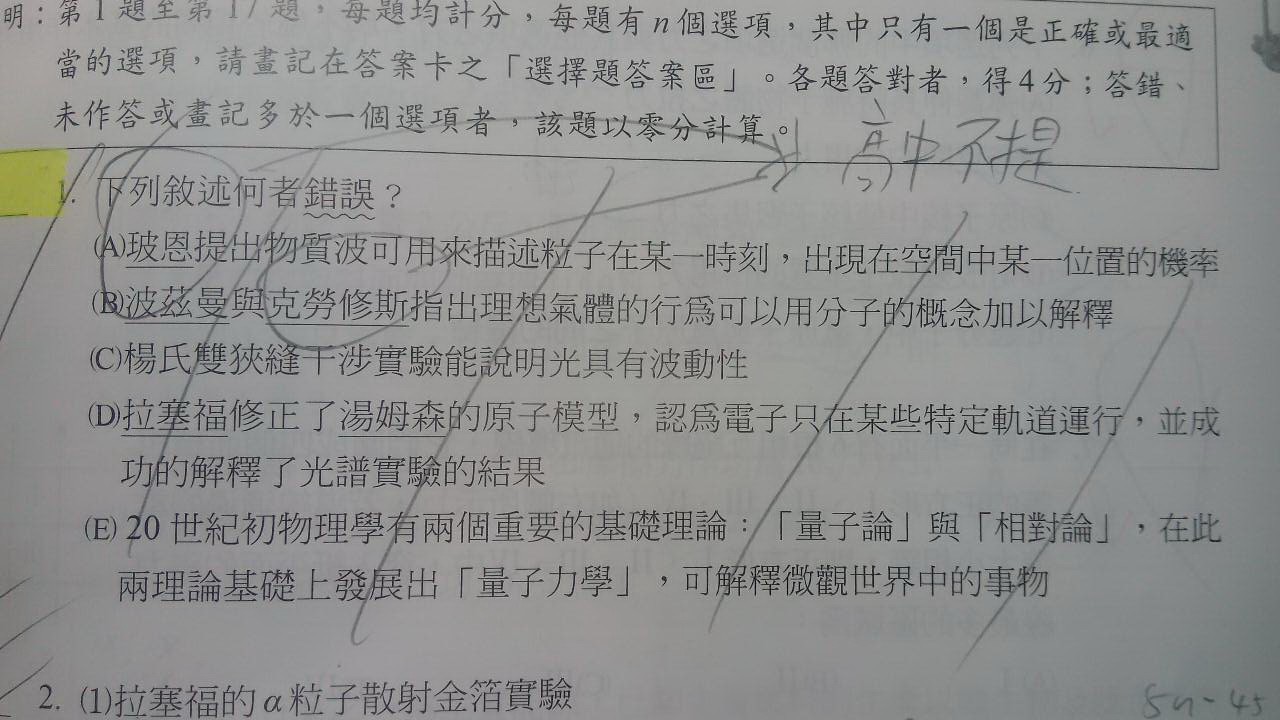 明：第1題至第17題，每題均計分，每題有n個選項，其中只有一個是正確或最適
當的選項，請畫記在答案卡之「選擇題答案區」。各題答對者，得4分；答錯、
未作答或畫記多於一個選項者，該題以零分計算。
高中不提
1. 下列敘述何者錯誤？
(A)玻恩提出物質波可用來描述粒子在某一時刻，出現在空間中某一位置的機率
(B)波茲曼與克勞修斯指出理想氣體的行為可以用分子的概念加以解釋
(C)楊氏雙狹縫干涉實驗能說明光具有波動性
(D)拉塞福修正了湯姆森的原子模型，認為電子只在某些特定軌道運行，並成
功的解釋了光譜實驗的結果
(E) 20世紀初物理學有兩個重要的基礎理論：「量子論」與「相對論」，在此
兩理論基礎上發展出「量子力學」，可解釋微觀世界中的事物
2. (1)拉塞福的α粒子散射金箔實驗